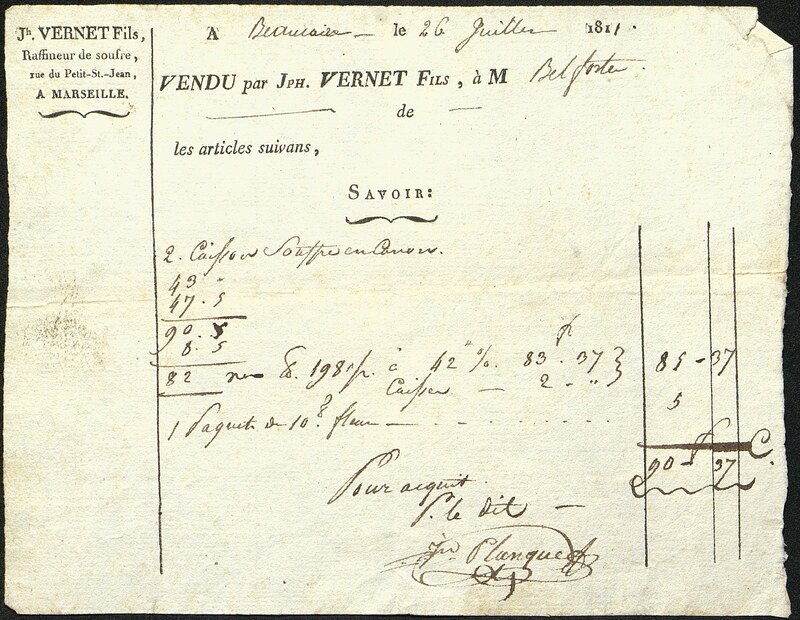 Jh. VERNET Fils,
Raffineur de soufre,
rue du Petit-St.-Jean,
A MARSEILLE.
A Beaucaire le 26 Juillet 1811.
VENDU par JPH. VERNET FILS, à M Belfortes
de
les articles suivans,
SAVOIR:
2. Caisses Souffre en Canon.
43
47. 5
90. 5
8. 5
82 198 à 42 % 83. 37 } 85-37
Caisses — 2 - "
1 Paquet de 10 fleur — 5
90-37
Pour acquit
P. le dit —
Jn Planque